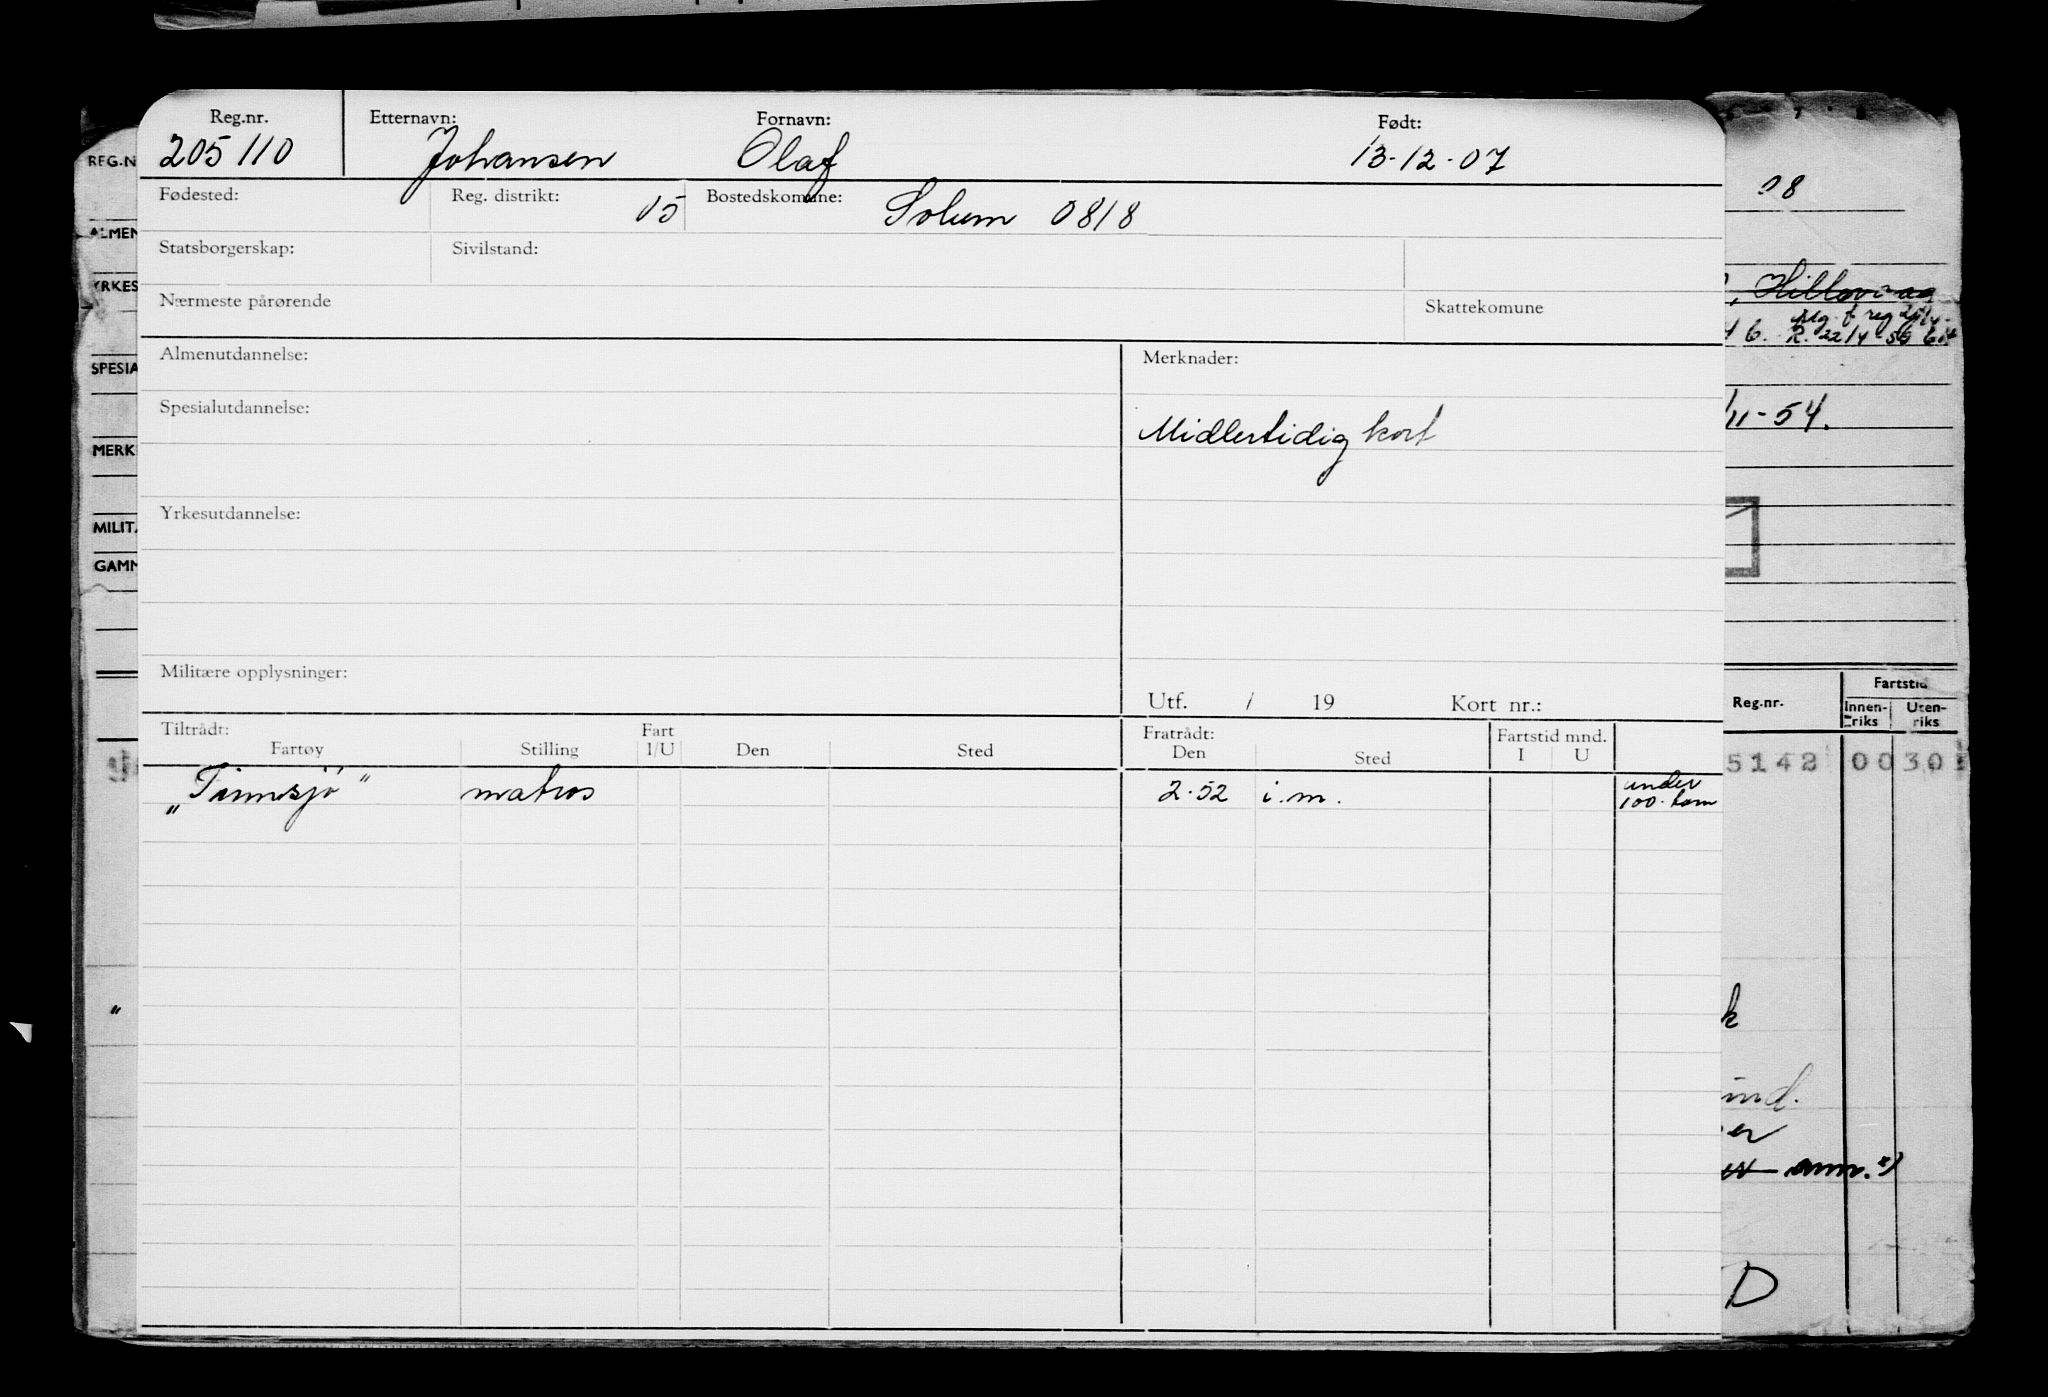 Reg.nr. Etternavn: Fornavn: Født:
205110 Johansen Olaf 13-12-07
Fødested: Reg. distrikt: 05 Bostedskomune: Solum 0818
Statsborgerskap: Sivilstand:
Nærmeste pårørende Skattekomune
Almenutdannelse: Merknader:
Spesialutdannelse:
Midlertidig kort
Yrkesutdannelse:
Militære opplysninger:
Utf. / 19 Kort nr.:
Tiltrådt: Fart Fratrådt: Fartstid mnd.
Fartøy Stilling I/U Den Sted Den Sted I U
„Tinnsjö" matros 2.52 i.m. under
100. tonn
REG.N
ALMEN
YRKES
SPESIA
MERK
MILITÆ
GAMM
"
08
R. 22/4
/11-54.
Reg.nr. Fartstid
Innen-riks Uten-riks
5142 00 30
k
ind.
er
anm.
D